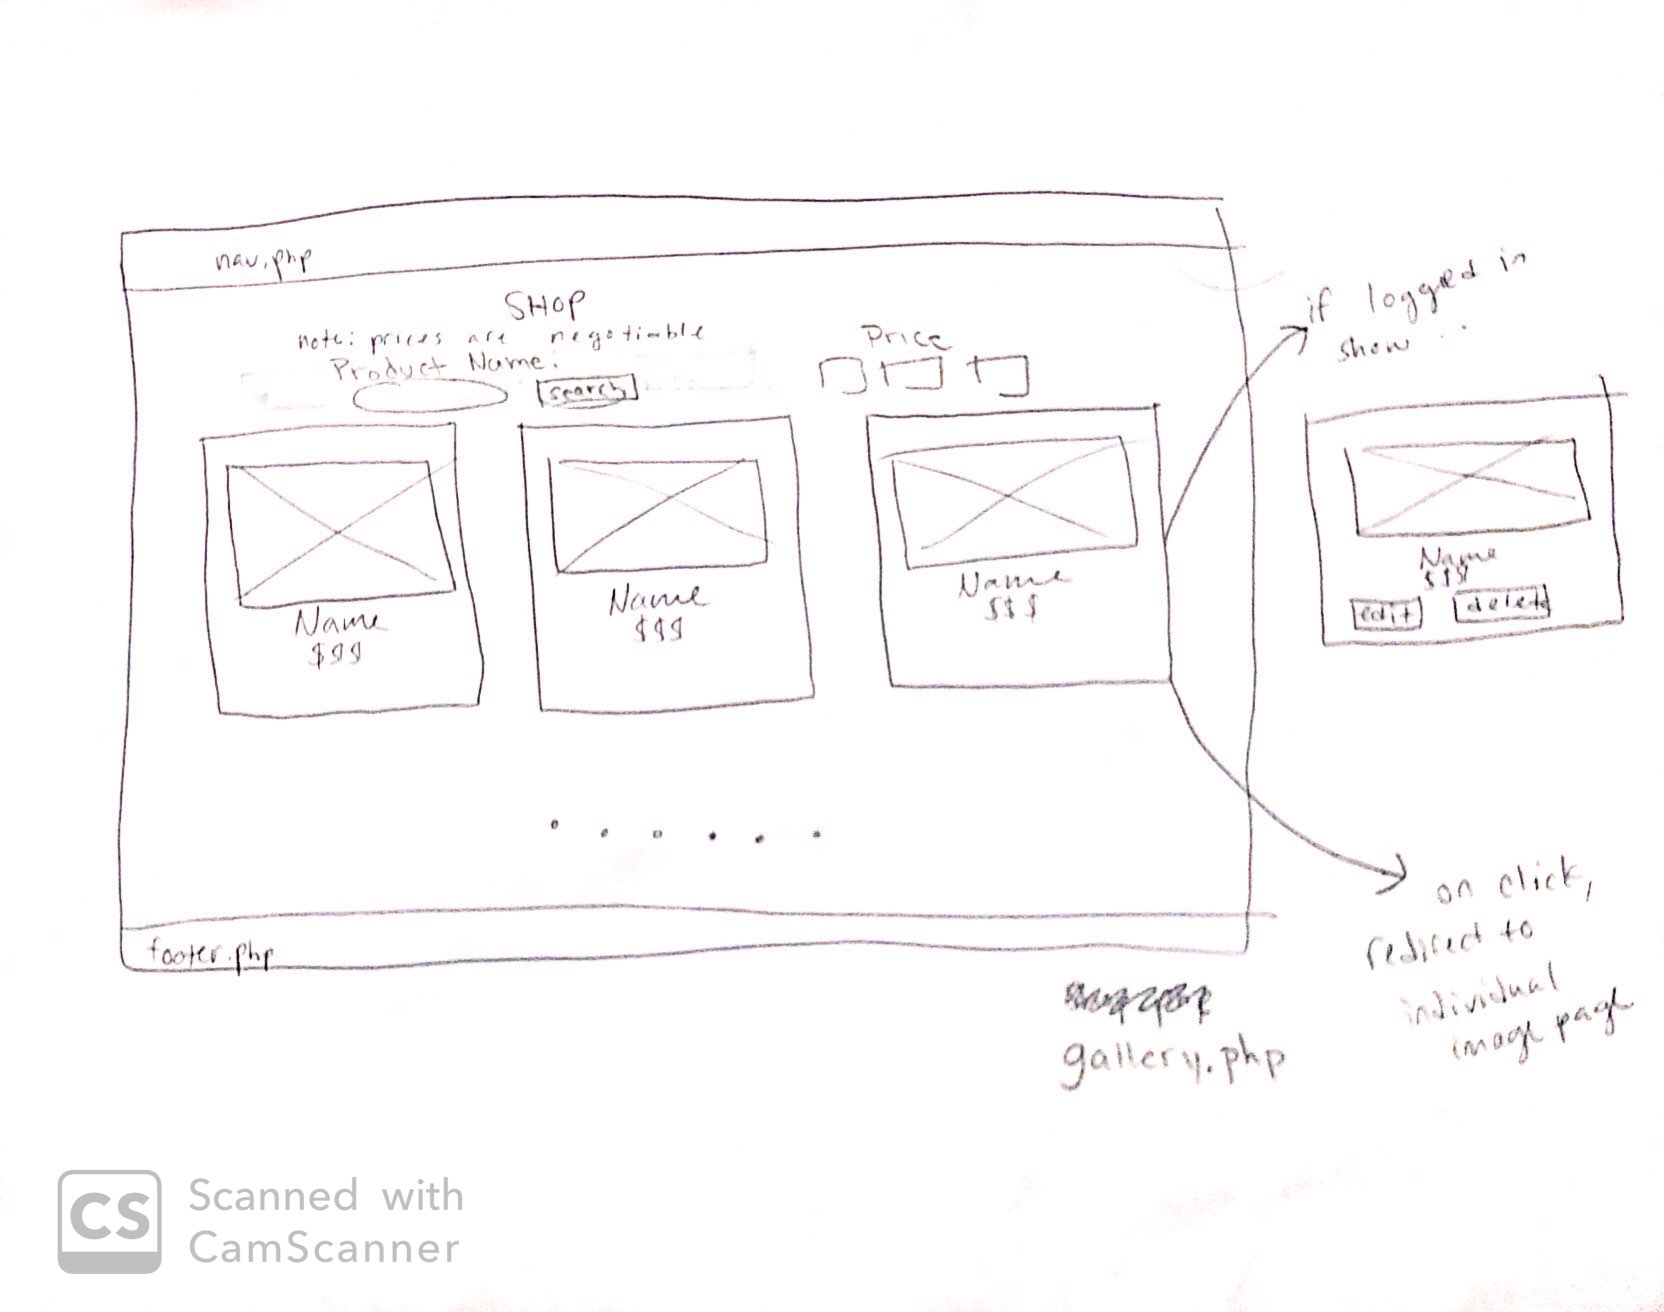 nav.php
SHOP
note: prices are negotiable
Product Name:
search
Price
Name
$$$
Name
$$$
Name
$$$
if logged in
show...
Name
$$$
edit
delete
on click,
redirect to
individual
image page
footer.php
gallery.php
CS
Scanned with
CamScanner